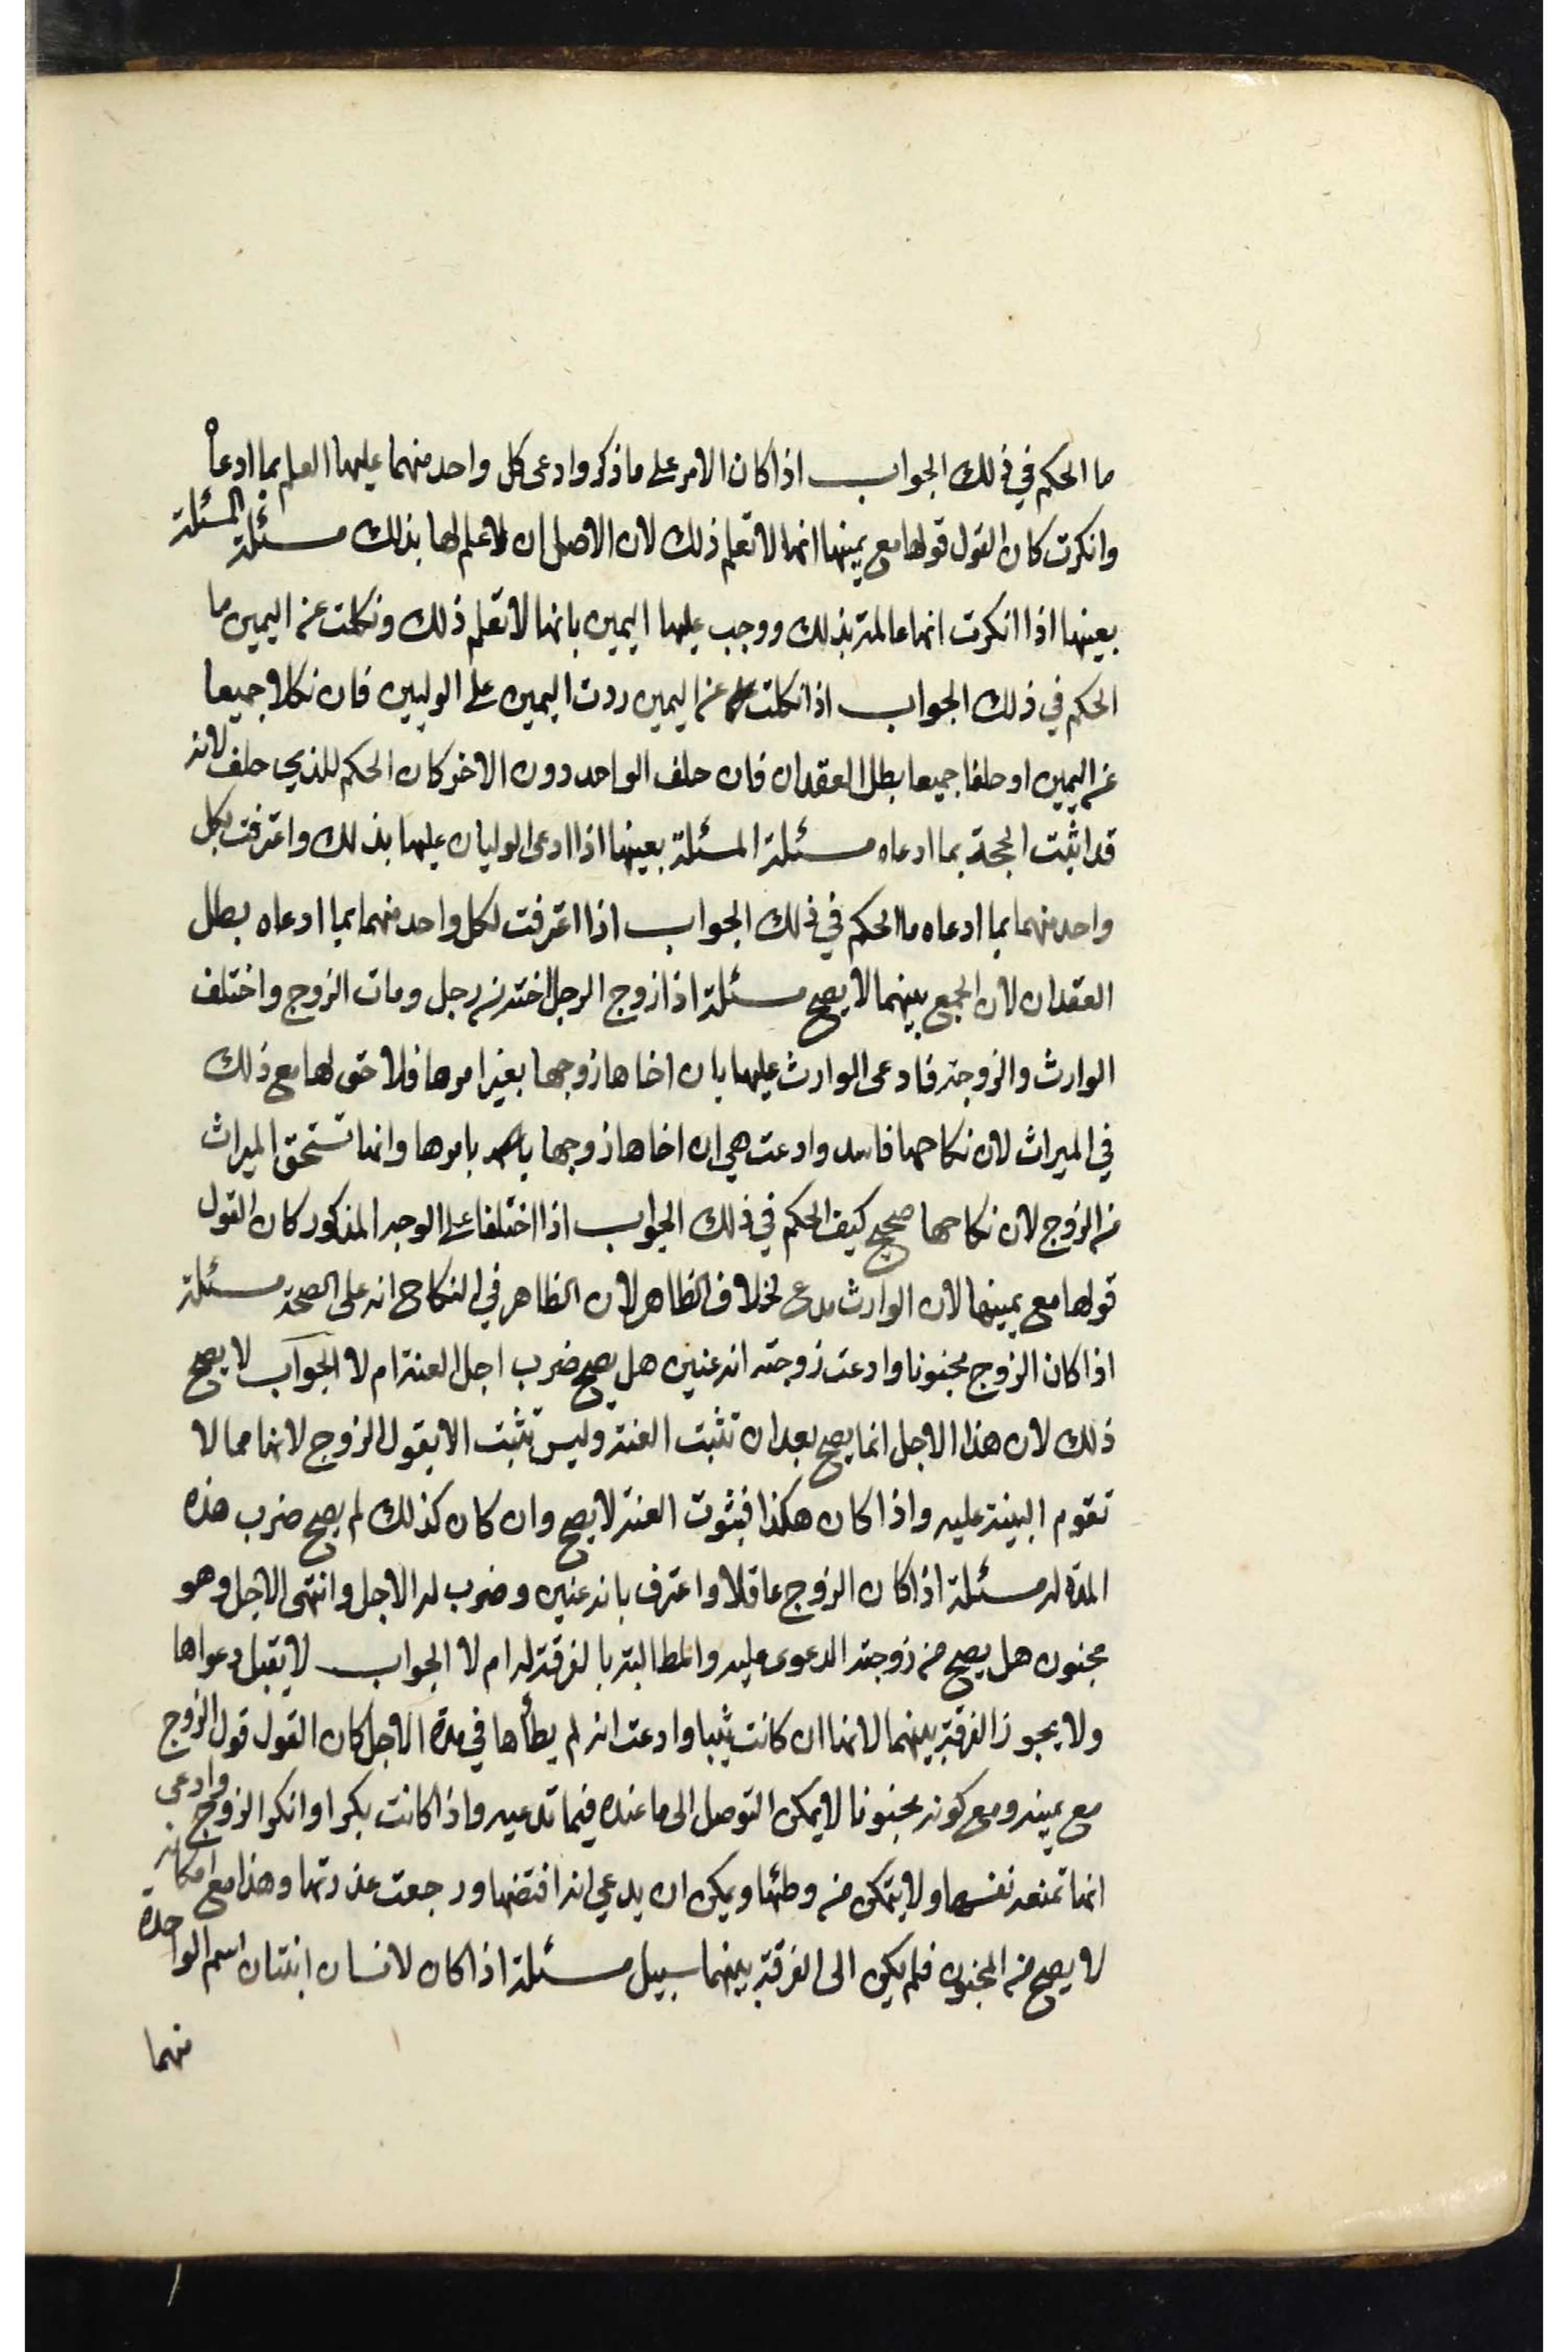 ما الحكم في ذلك الجواب اذا كان الامر على ما ذكر وادعى كل واحد منهما عليها العلم بما ادعاه
وانكرت كان القول قولها مع يمينها انها لا تعلم ذلك لان الاصل ان لا علم لها بذلك مسئلة المسئلة
بعينها اذا انكرت انها عالمة بذلك ووجب عليها اليمين بانها لا تعلم ذلك ونكلت عن اليمين ما
الحكم في ذلك الجواب اذا نكلت عن اليمين ردت اليمين على الوليين فان نكلا جميعا
عن اليمين او حلفا جميعا بطل العقدان فان حلف الواحد دون الاخر كان الحكم للذي حلف لانه
قد اثبت الحجة بما ادعاه مسئلة المسئلة بعينها اذا ادعى الوليان عليها بذلك واعترفت لكل
واحد منهما بما ادعاه ما الحكم في ذلك الجواب اذا اعترفت لكل واحد منهما بما ادعاه بطل
العقدان لان الجمع بينهما لا يصح مسئلة اذا زوج الرجل اخته من رجل ومات الزوج واختلف
الوارث والزوجة فادعى الوارث عليها بان اخاها زوجها بغير امرها فلا حق لها مع ذلك
في الميراث لان نكاحها فاسد وادعت هي ان اخاها زوجها بامرها وانها تستحق الميراث
من الزوج لان نكاحها صحيح كيف الحكم في ذلك الجواب اذا اختلفا على الوجه المذكور كان القول
قولها مع يمينها لان الوارث مدع لخلاف الظاهر لان الظاهر في النكاح انه على الصحة مسئلة
اذا كان الزوج مجنونا وادعت زوجته انه عنين هل يصح ضرب اجل العنة ام لا الجواب لا يصح
ذلك لان هذا الاجل انما يصح بعد ان تثبت العنة وليس تثبت الا بقول الزوج لانها مما لا
تقوم البينة عليه واذا كان هكذا فثبوت العنة لا يصح وان كان كذلك لم يصح ضرب هذه
المدة له مسئلة اذا كان الزوج عاقلا واعترف بانه عنين وضرب له الاجل وانتهى الاجل وهو
مجنون هل يصح من زوجته الدعوى عليه والمطالبة بالفرقة له ام لا الجواب لا يقبل دعواها
ولا يجوز الفرقة بينهما لانها ان كانت ثيبا وادعت انه لم يطأها في مدة الاجل كان القول قول الزوج
مع يمينه ومع كونه مجنونا لا يمكن التوصل الى ما عنده فيما تدعيه واذا كانت بكرا وانكر الزوج وادعى
انها تمنعه نفسها ولا يتمكن من وطئها ويمكن ان يدعي انه افتضها ورجعت عذرتها وهذا مع امكانه
لا يصح من المجنون فلم يكن الى الفرقة بينهما سبيل مسئلة اذا كان لانسان ابنتان اسم الواحدة
منهما